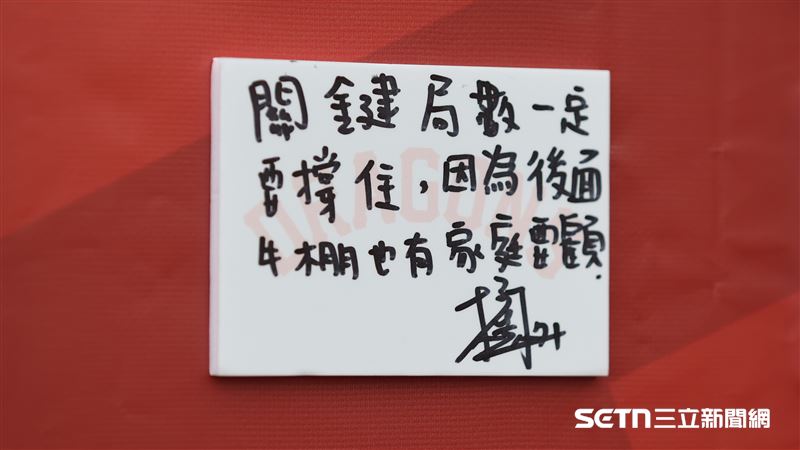 關鍵局數一定
要撐住，因為後面
牛棚也有家庭要顧.
DRAGONS
SETN三立新聞網